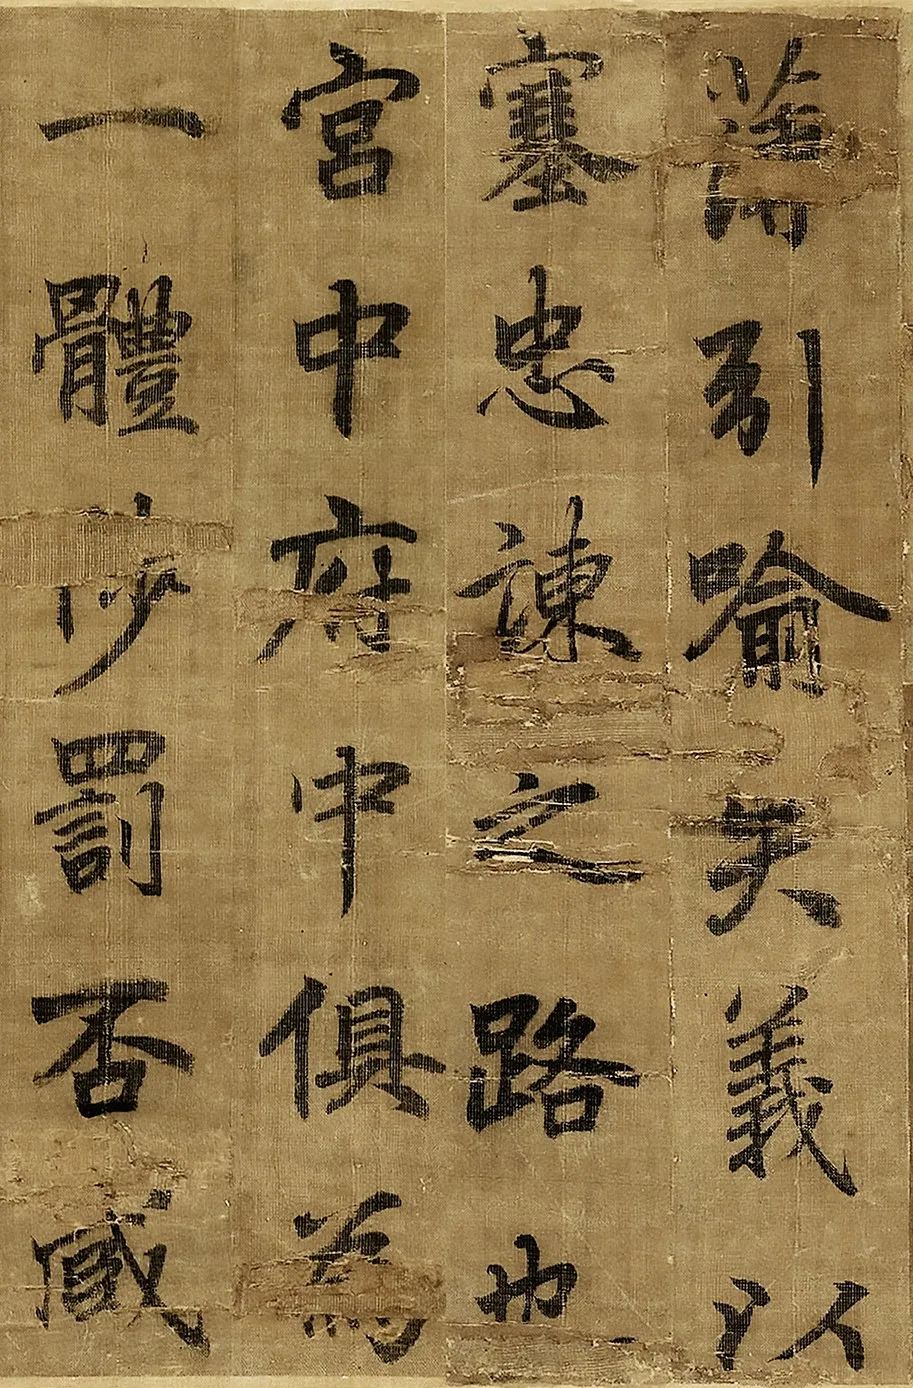 薄引喻失義以
塞忠諫之路也
宮中府中俱為
一體陟罰否臧